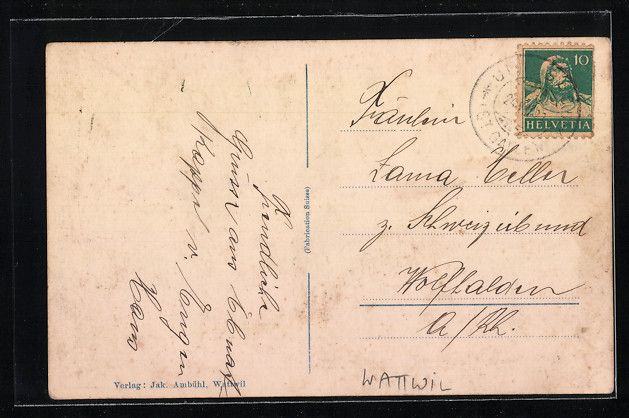 Freundliche
Grüsse aus Ebnat
Kappel v. Eugen
Hans
(Fabrication Suisse)
Verlag: Jak. Ambühl, Wattwil
10
HELVETIA
Fräulein
z. Schweizerbund
Wolfhalden
A/Rh.
WATTWIL